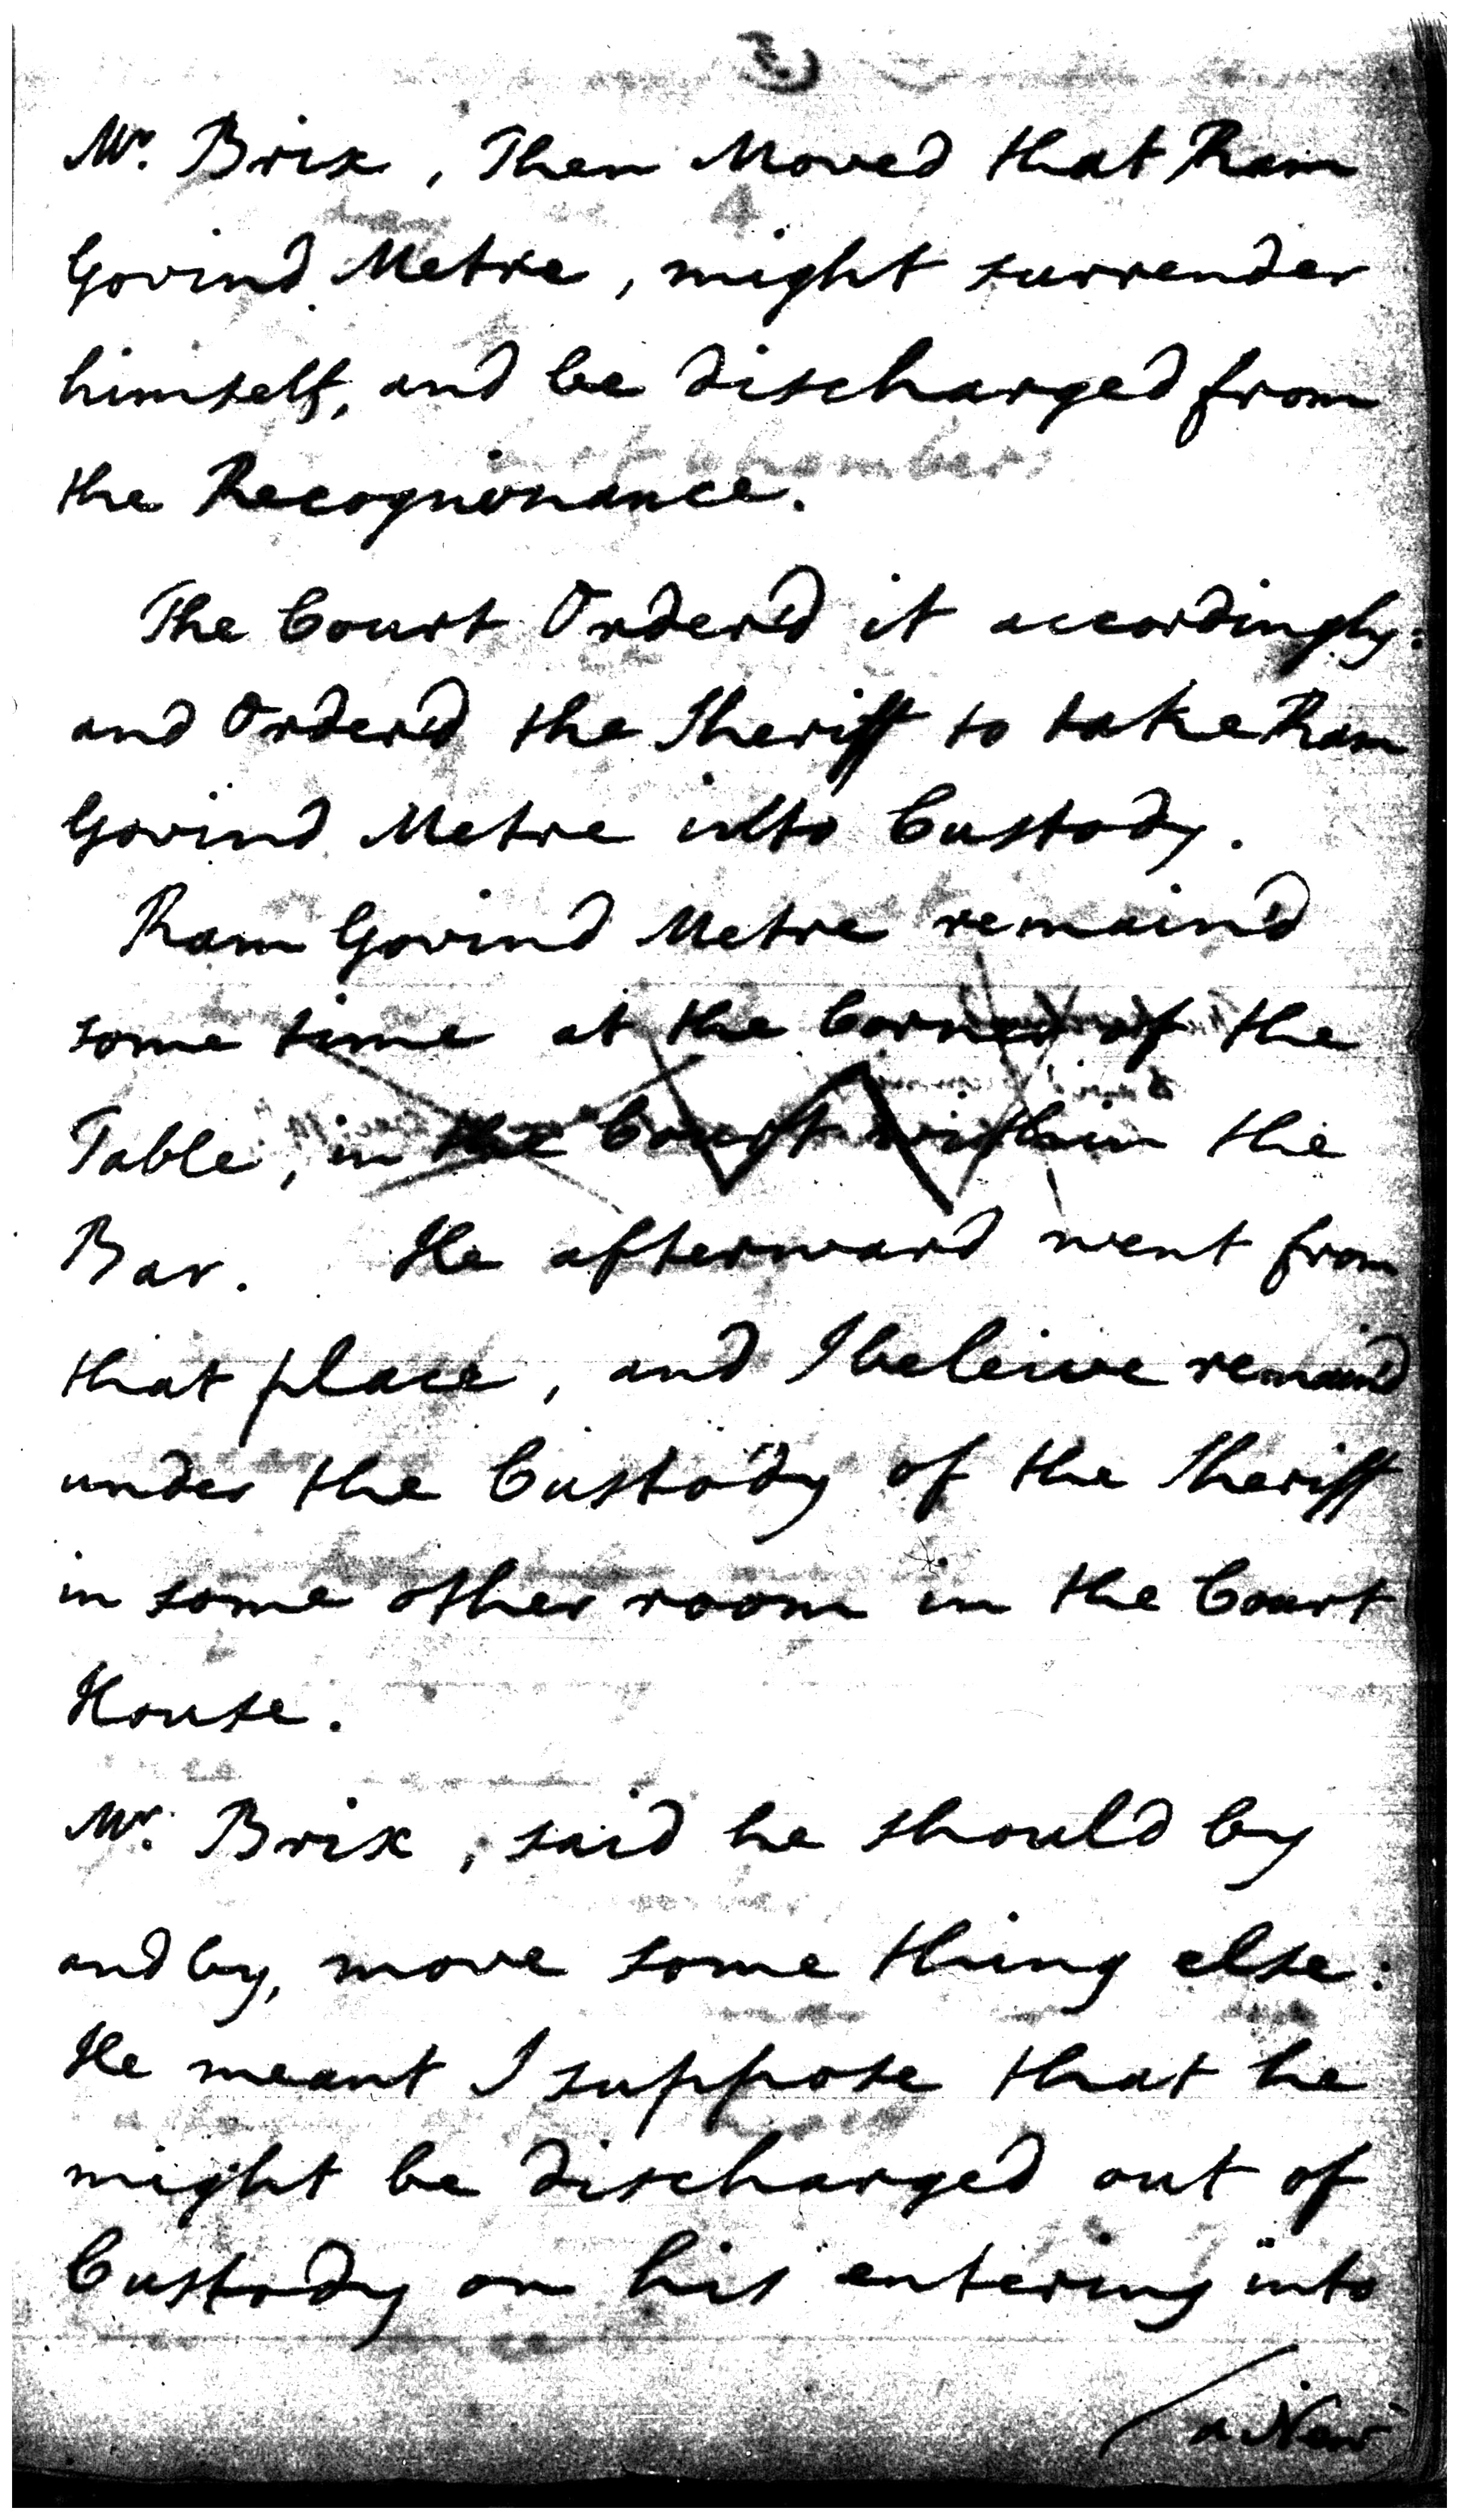 Mr. Brix, Then Moved that Ram
Govind Metre, might surrender
himself, and be discharged from
the Recognizance.
The Court Order'd it accordingly:
and Order'd the Sheriff to take Ram
Govind Metre into Custody.
Ram Govind Metre remain'd
some time at the Corner of the
Table, in the Court within the
Bar. He afterward went from
that place, and I beleive remain'd
under the Custody of the Sheriff
in some other room in the Court
House.
Mr. Brix, said he should by
and by, move some thing else:
He meant I suppose that he
might be discharged out of
Custody on his entering into
a New